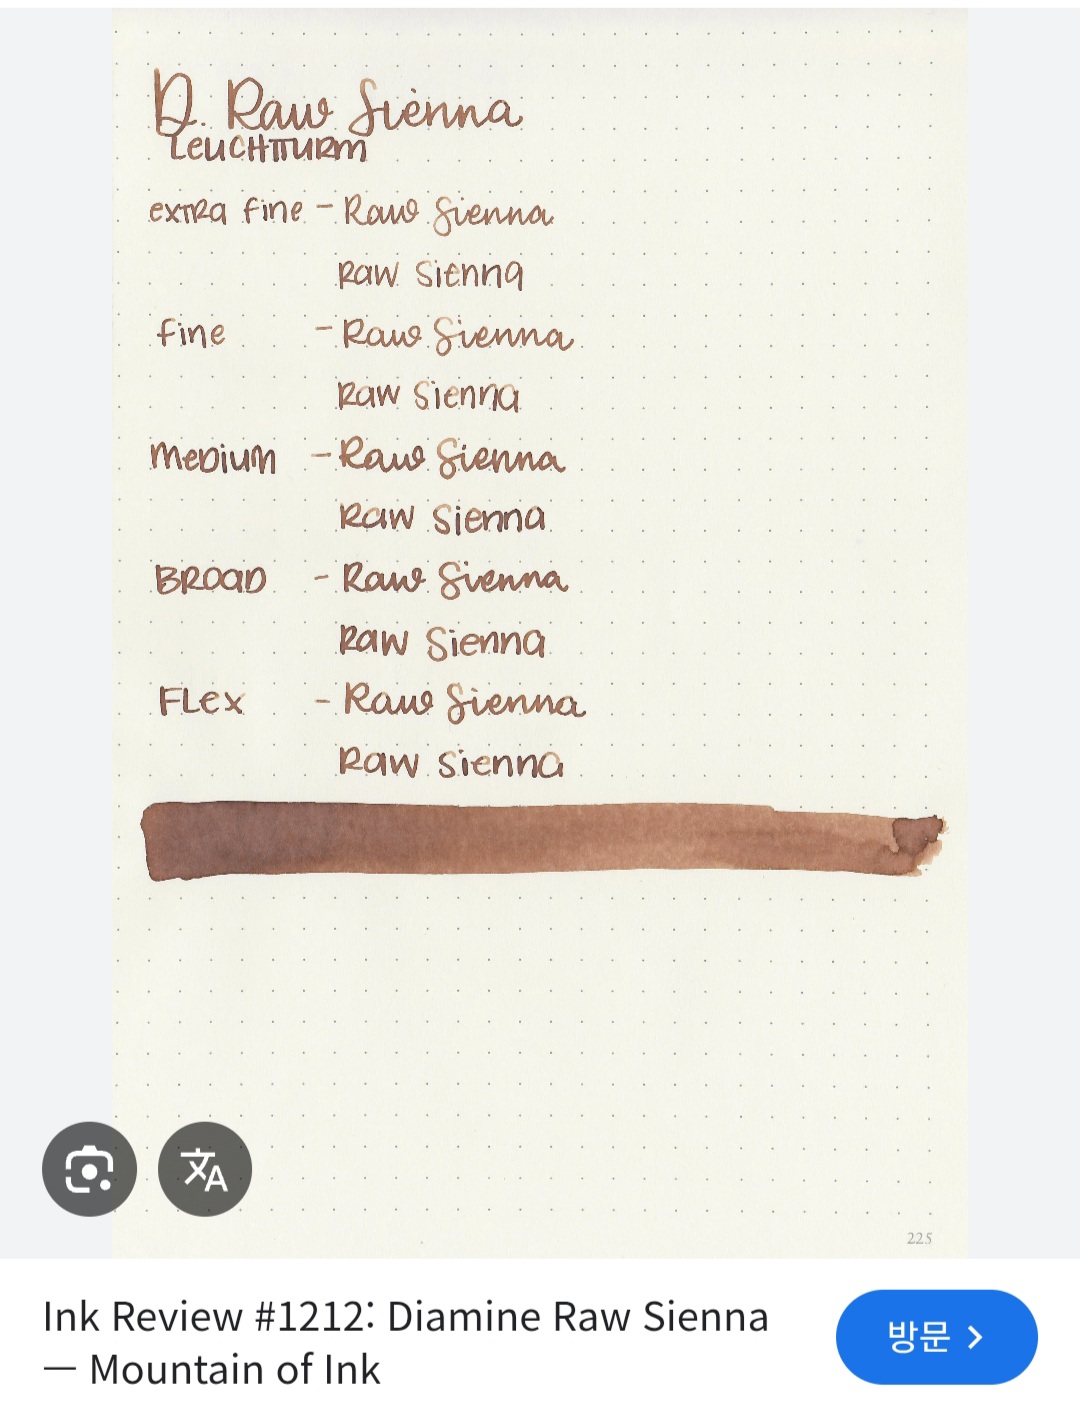 D. Raw Sienna
Leuchtturm
extra fine - Raw Sienna
Raw Sienna
fine - Raw Sienna
Raw Sienna
Medium - Raw Sienna
Raw Sienna
Broad - Raw Sienna
Raw Sienna
Flex - Raw Sienna
Raw Sienna
文A
225
Ink Review #1212: Diamine Raw Sienna
— Mountain of Ink
방문 >